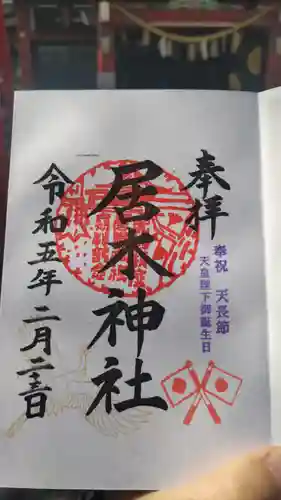 奉拝
奉祝 天長節
天皇陛下御誕生日
居木神社
令和五年二月二十三日